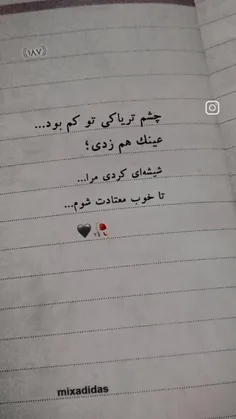 《۱۸۷》
چشم تریاکی تو کم بود...
عینك هم زدی؛
شیشه‌ای کردی مرا...
تا خوب معتادت شوم...
mixadidas